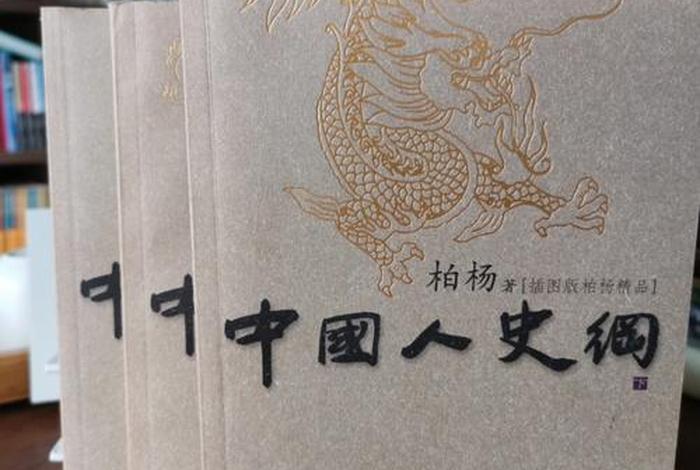 柏杨 著[插图版柏杨精品]
中國人史綱
下
中
中